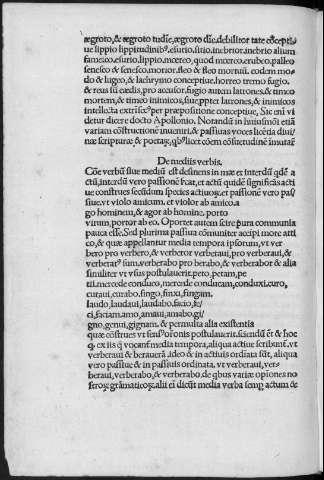 ægroto,& ægroto tudĩe,ægroto dñe.debilitor tate cõcepti/
ue lippio lippitudinib⁹.esurio.sitio.inebrior.inebrio alium
famesco.esurio.lippio.mœreo,quod mœreo.erubeo.palleo
senesco & senesco,morior.fleo & fleo mortuũ. eodem mo/
do & lugeo,& lachrymo conceptiue.horreo tremo fugio.
& reus sũ cædis,pro accusor.fugio autem latrones,& timco
mortem,& timeo inimicos,sue,ppter latrones,& inimicos
intello.ita extrĩsec⁹ per præpositione conceptiue, Sic eni vi
detur dicere docto Apollonio. Notandũ in huiusmoi etiã
variam cõstructione inueniri,& passiuas voces licẽtia diui/
næ scripturæ & poetaꝝ,qb⁹ licet cõem cõsuetudinẽ imutare
De mediis verbis.
Cõe verbũ siue mediũ est desinens in mæ et interdũ qdẽ a
ctũ,interdũ vero passionẽ sčat,et actũ quidẽ significãs acti
ue construes secũdum species actiuoꝝ.et passionẽ vero pas/
siue.vt violo amicum. et violor ab amico.a
go hominem,& agor ab homine, porto
virum,portor ab eo. Oportet autem scire pura communia
pauca esse. Sed plurima passiua cõmuniter accipi more atti
co,& quæ appellantur media tempora ipsorum,vt ver
bero pro verbero,& verberor verberaui,pro verberaui,&
verberat⁹ sum.verberabo pro berabo,& verberabor & alia
similiter vt vsus postulauerit.peto,petam,pe
tii.mercede conduco,mercede conducam,conduxi.curo,
curaui,curabo.fingo,finxi,fingam.
laudo,laudaui,laudabo.facio,fe/
ci,faciam.amo,amaui,amabo.gi/
gno,genui,gignam,& permulta alia existentia
quæ cõstrues vt sens⁹ orõnis postulauerit.sciendũ ẽt & hoc
ꝙ ex iis q vocant̃ media tempora,aliqua actiue scribunt̃.vt
verberaui & beraverã.ideo & in actiuis ordinata sũt, aliqua
vero passiue & in passiuis ordinata, vt verberaui,ver/
beraui,verberabo,& verberabo.de qbus variæ opiones no
feroꝝ grãmaticoꝝ.alii eĩ dicũt media verba semp actum de